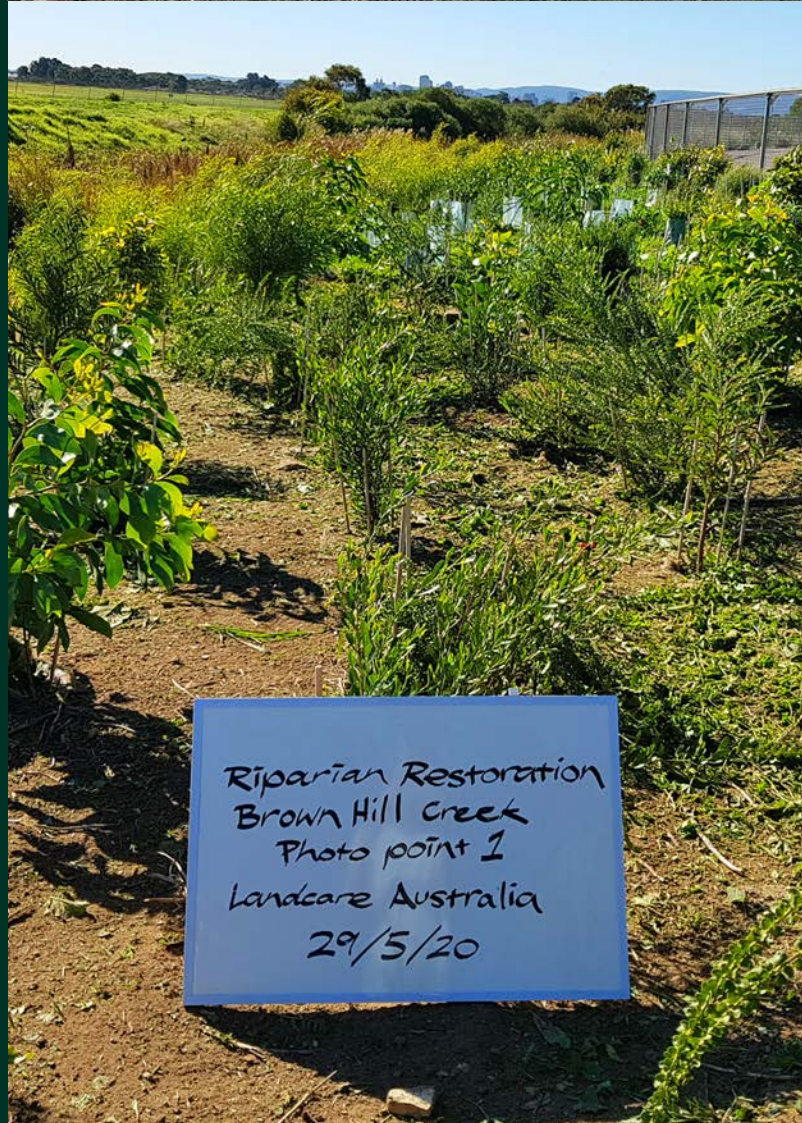 Riparian Restoration
Brown Hill Creek
Photo point 1
Landcare Australia
29/5/20